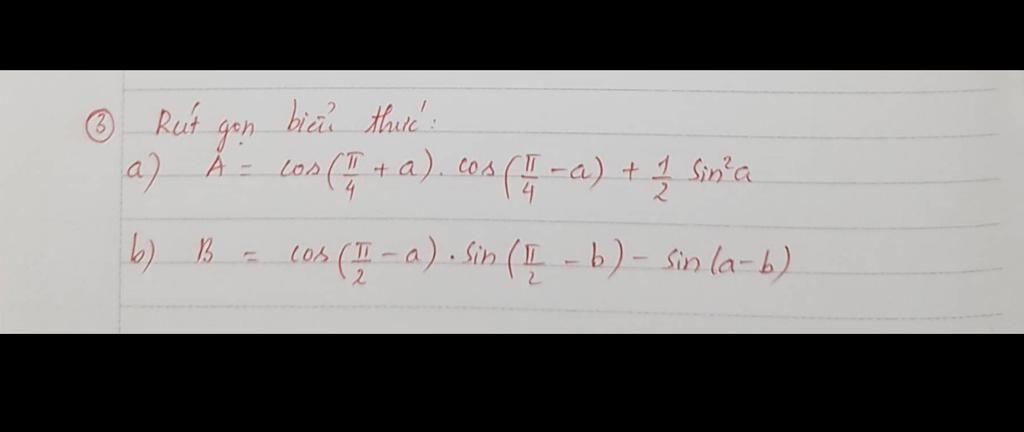 ③ Rút gọn biểu thức:
a) A = cos(π/4 + a). cos(π/4 - a) + 1/2 sin²a
b) B = cos(π/2 - a) . sin(π/2 - b) - sin(a-b)